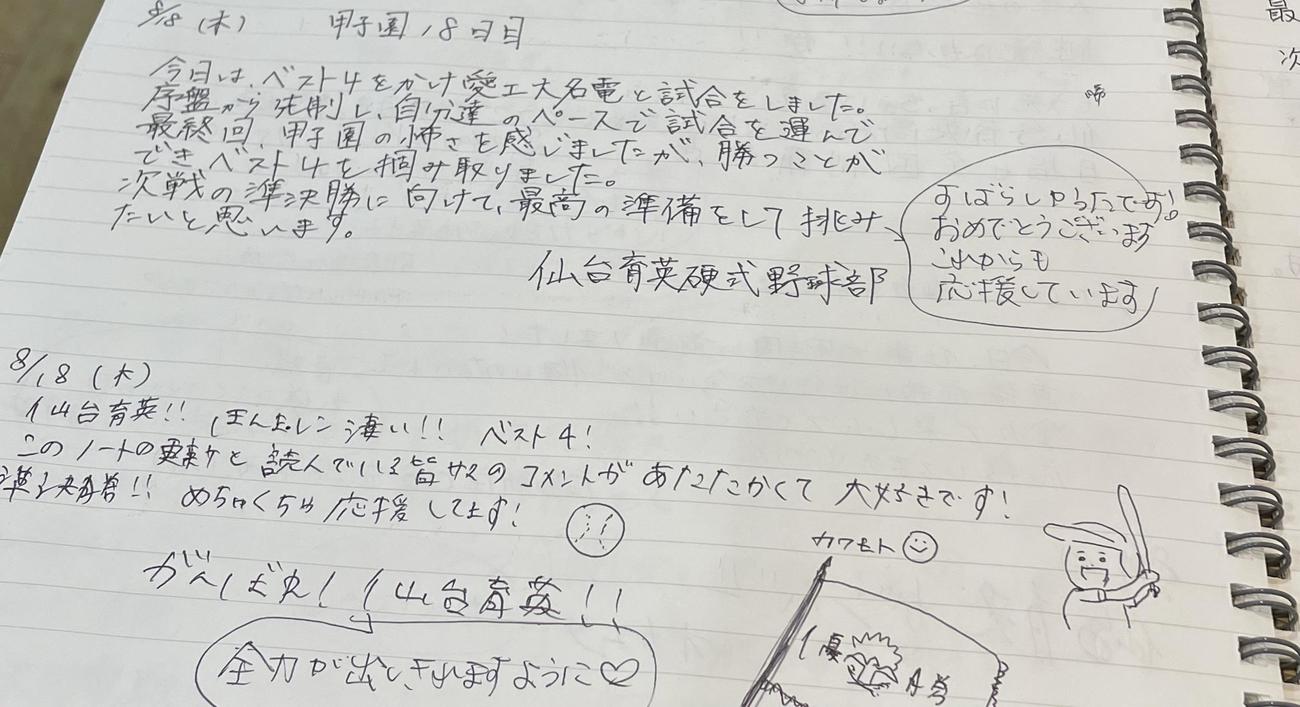 8/18 (木) 甲子園 18日目
今日は、ベスト4をかけ愛工大名電と試合をしました。
序盤から先制し、自分達のペースで試合を運んで
最終回、甲子園の怖さを感じましたが、勝つことが
でき、ベスト4を掴み取りました。
次戦の準決勝に向けて、最高の準備をして挑み
たいと思います。
仙台育英硬式野球部
おめでとうございます
これからも
応援しています
8/18 (木)
仙台育英!! ほんとに凄い!! ベスト4!
このノートの更新と読んでいる皆サマのコメントがあたたかくて大好きです!
準決勝!! めちゃくちゃ応援してます!
がんばれ! 仙台育英!!
全力が出しきれますように♡
カワモト
優
最
次